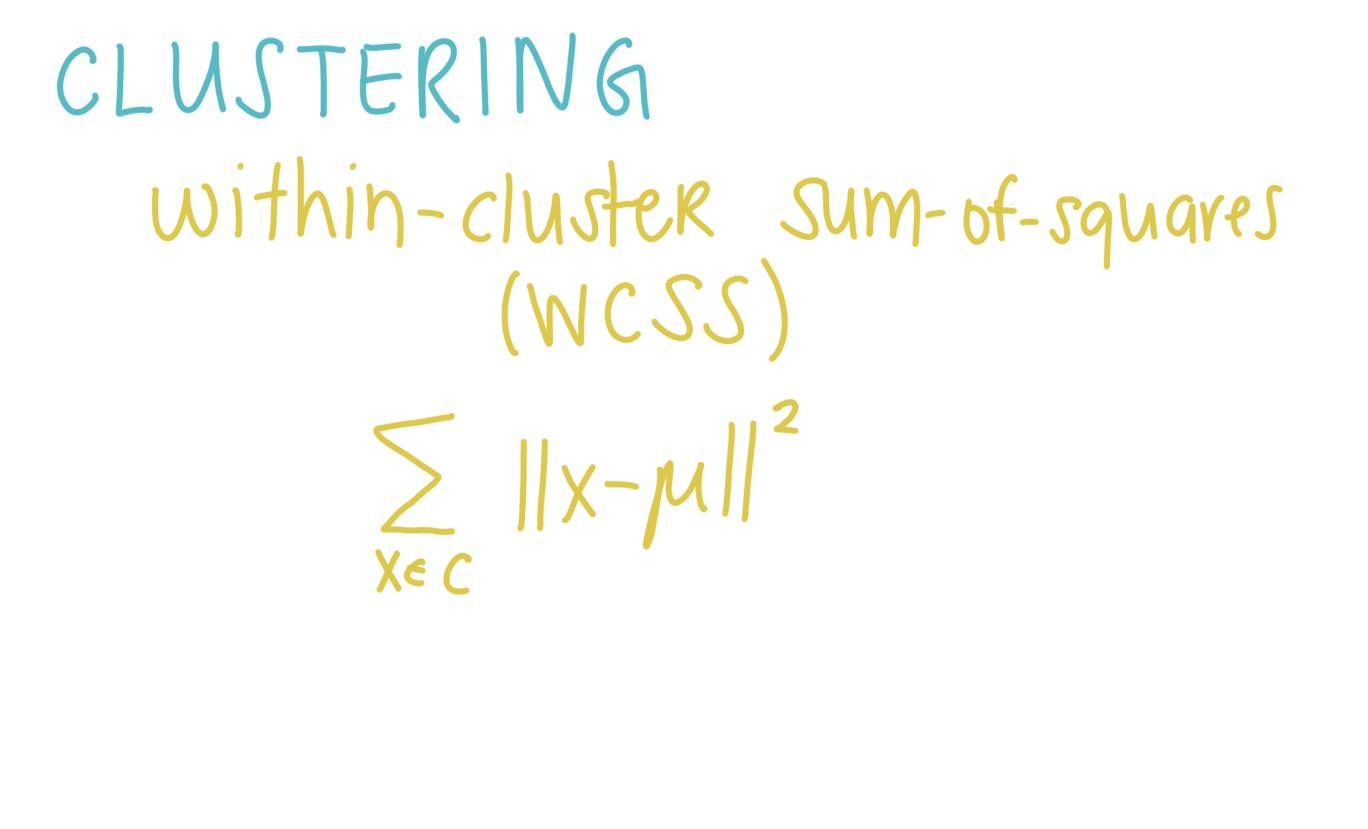 CLUSTERING
within-cluster sum-of-squares
(WCSS)
∑ ||x-μ||²
x∈C